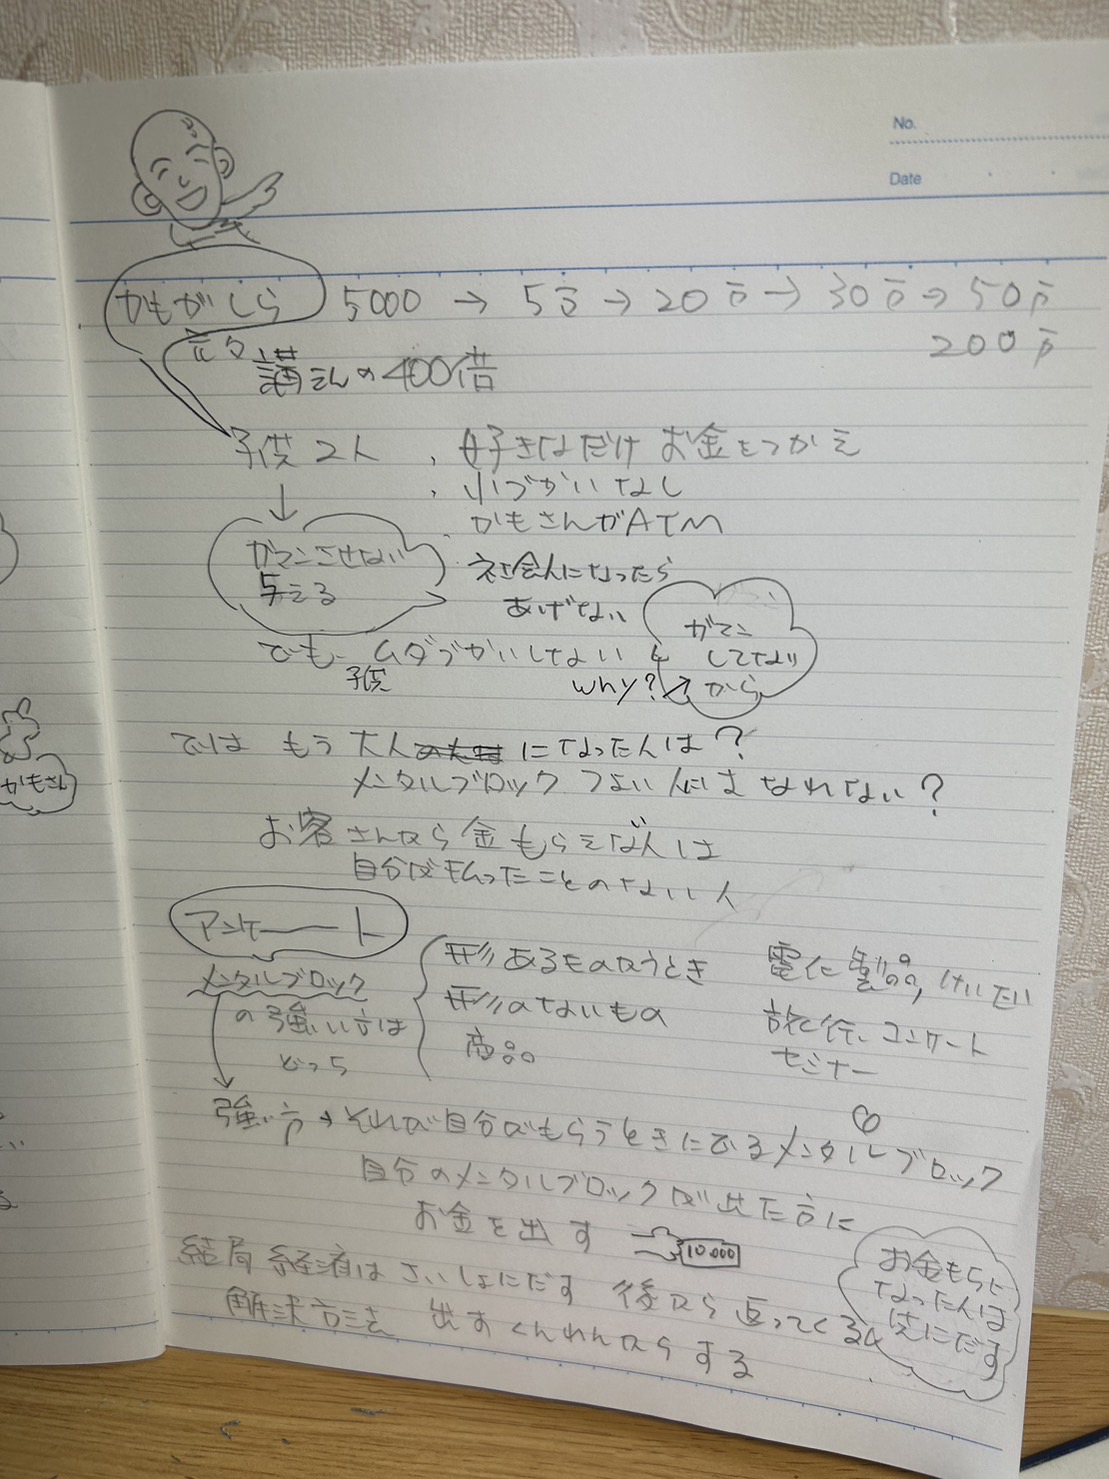 No.
Date
かもがしら 5000 → 5万 → 20万 → 30万 → 50万
200万
元々 講さんの400倍
子供2人 、好きなだけお金をつかえ
、小づかいなし
かもさんがATM
ガマンさせない
与える
社会人になったら
あげない
でも ムダづかいしない
子供
why?
ガマン
してない
から
では もう大人になった人は?
メンタルブロックつよい人はなれない?
お客さんから金もらえない人は
自分が払ったことのない人
アンケート
メンタルブロック
の強い方は
どっち
形あるもの買うとき 電化製品,けいたい
形のないもの 旅行、コンサート
商品 セミナー
強い方→それが自分がもらうときにでるメンタルブロック
自分のメンタルブロックが出た方に
お金を出す 10.000
結局経済はさいしょにだす 後から返ってくる
解決方法 出すくんれんからする
お金もらに
なった人は
先にだす
かもさん